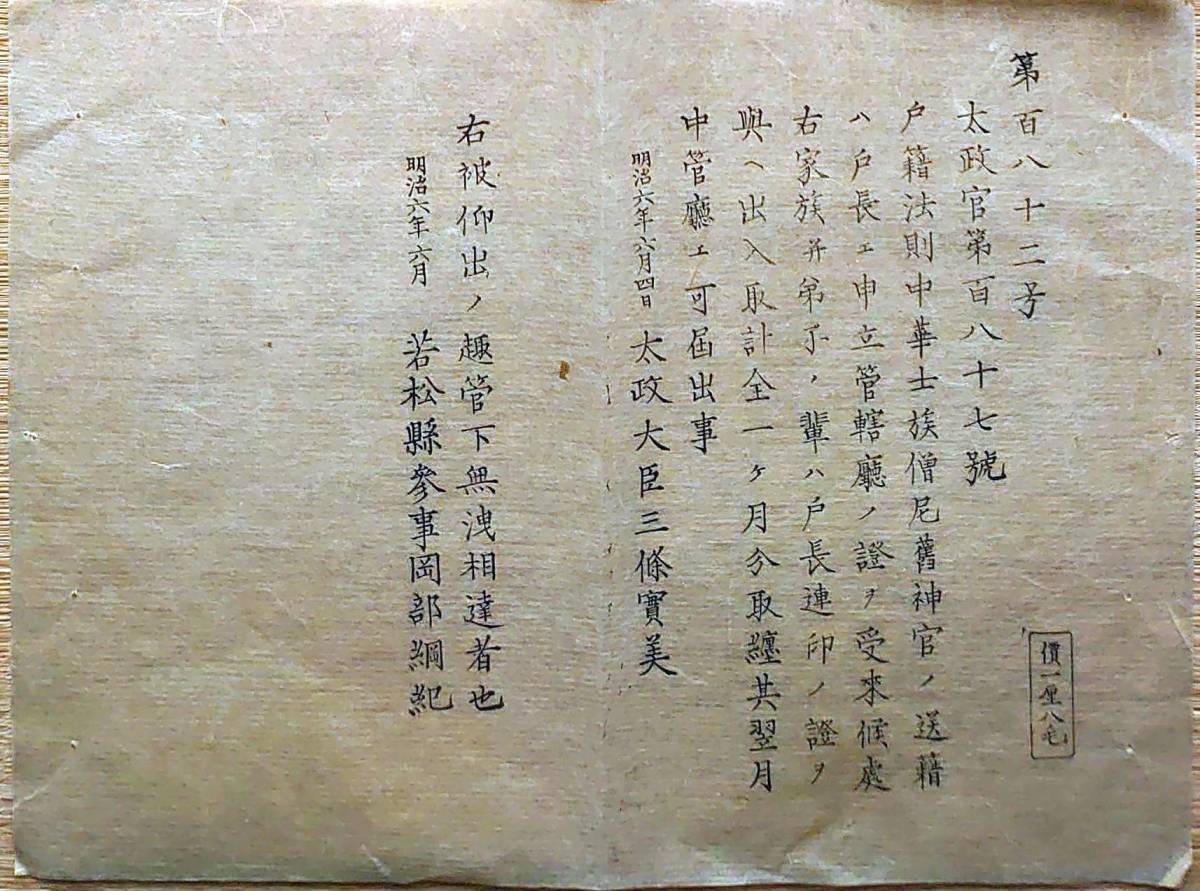 第百八十二号
價一厘八毛
太政官第百八十七號
戸籍法則中華士族僧尼舊神官ノ送籍
ハ戸長エ申立管轄廳ノ證ヲ受來候處
右家族并弟子ノ輩ハ戸長連印ノ證ヲ
與ヘ出入取計全一ヶ月分取纏其翌月
中管廳エ可届出事
明治六年六月四日 太政大臣三條實美
右被仰出ノ趣管下無洩相達者也
明治六年六月 若松縣參事岡部綱紀